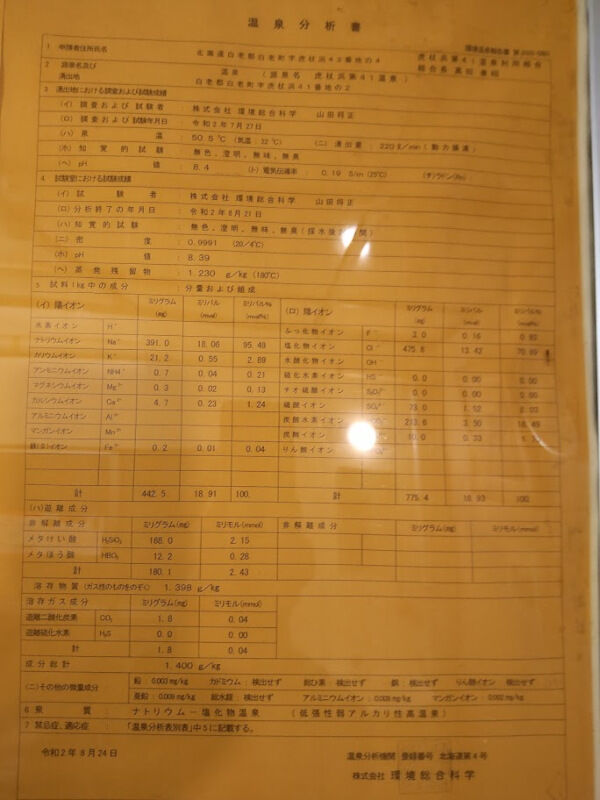 温泉分析書
1 申請者住所氏名 北海道白老郡白老町字虎杖浜43番地の4 虎杖浜第41温泉利用組合
2 源泉名及び湧出地 温泉 (源泉名 虎杖浜第41温泉)
白老郡白老町字虎杖浜41番地の2
3 湧出地における調査および試験成績
(イ) 調査および試験者 株式会社 環境総合科学 山田祥正
(ロ) 調査および試験年月日 令和2年7月27日
(ハ) 泉温 50.5℃ (気温:22℃) (ニ) 湧出量 220ℓ/min (動力揚湯)
(ホ) 知覚的試験 無色、澄明、無味、無臭
(ヘ) pH値 8.4 (ト) 電気伝導率 0.19 S/m (25℃) (チ) ラドン(Rn)
4 試験室における試験成績
(イ) 試験者 株式会社 環境総合科学 山田祥正
(ロ) 分析終了の年月日 令和2年8月21日
(ハ) 知覚的試験 無色、澄明、無味、無臭 (採水後 時間)
(ニ) 密度 0.9991 (20/4℃)
(ホ) pH値 8.39
(ヘ) 蒸発残留物 1.230 g/kg (180℃)
5 試料1kg中の成分 分量および組成
(イ) 陽イオン ミリグラム(mg) ミリバル(mval) ミリバル%(mval%) (ロ) 陰イオン ミリグラム(mg) ミリバル(mval) ミリバル%(mval%)
水素イオン H⁺ ふっ化物イオン F⁻ 3.0 0.16
ナトリウムイオン Na⁺ 391.0 18.06 95.49 塩化物イオン Cl⁻ 475.8 13.42
カリウムイオン K⁺ 21.2 0.55 2.89 水酸化物イオン OH⁻
アンモニウムイオン NH4⁺ 0.7 0.04 0.21 硫化水素イオン HS⁻ 0.0 0.00 0.00
マグネシウムイオン Mg²⁺ 0.3 0.02 0.13 チオ硫酸イオン S₂O₃²⁻ 0.0 0.00 0.00
カルシウムイオン Ca²⁺ 4.7 0.23 1.24 硫酸イオン SO₄²⁻ 73.0 1.52
アルミニウムイオン Al³⁺ 炭酸水素イオン 213.6 3.50 18.49
マンガンイオン Mn²⁺ 炭酸イオン 10.0 0.33
鉄(Ⅱ)イオン Fe²⁺ 0.2 0.01 0.04 りん酸イオン
計 442.5 18.91 100. 計 775.4 18.93 100.
(ハ) 遊離成分
非解離成分 ミリグラム(mg) ミリモル(mmol) 非解離成分 ミリグラム(mg) ミリモル(mmol)
メタけい酸 H₂SiO₃ 168.0 2.15
メタほう酸 HBO₂ 12.2 0.28
計 180.1 2.43
溶存物質(ガス性のものをのぞく) 1.398 g/kg
溶存ガス成分 ミリグラム(mg) ミリモル(mmol)
遊離二酸化炭素 CO₂ 1.8 0.04
遊離硫化水素 H₂S 0.0 0.00
計 1.8 0.04
成分総計 1.400 g/kg
(ニ) その他の微量成分 鉛:0.003 mg/kg カドミウム:検出せず 総ひ素:検出せず 銅:検出せず りん酸イオン 検出せず
亜鉛:0.009 mg/kg 総水銀:検出せず アルミニウムイオン:0.009 mg/kg マンガンイオン:0.002 mg/kg
6 泉質 ナトリウム-塩化物温泉 (低張性弱アルカリ性高温泉)
7 禁忌症、適応症 「温泉分析表別表」中5に記載する。
令和2年8月24日
温泉分析機関 登録番号 北海道第4号
株式会社 環境総合科学